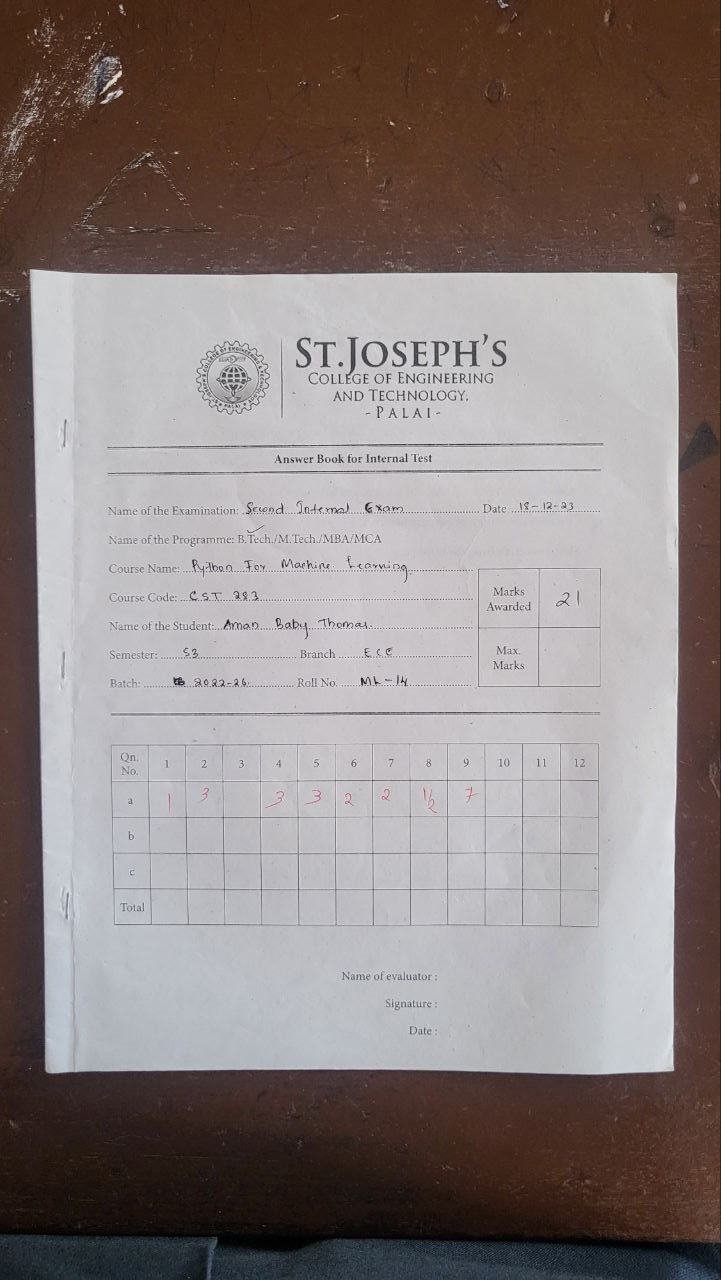 ST.JOSEPH'S
COLLEGE OF ENGINEERING
AND TECHNOLOGY,
- PALAI -
Answer Book for Internal Test
Name of the Examination: Second Internal Exam Date 18-12-23
Name of the Programme: B.Tech./M.Tech./MBA/MCA
Course Name: Python For Machine Learning
Course Code: CST 283
Name of the Student: Aman Baby Thomas.
Semester: S3 Branch ECE
Batch: 2022-26 Roll No. ML-14
Marks Awarded 21
Max. Marks
Qn. No. 1 2 3 4 5 6 7 8 9 10 11 12
a 1 3 3 3 2 2 1/2 7
b
c
Total
Name of evaluator :
Signature :
Date :